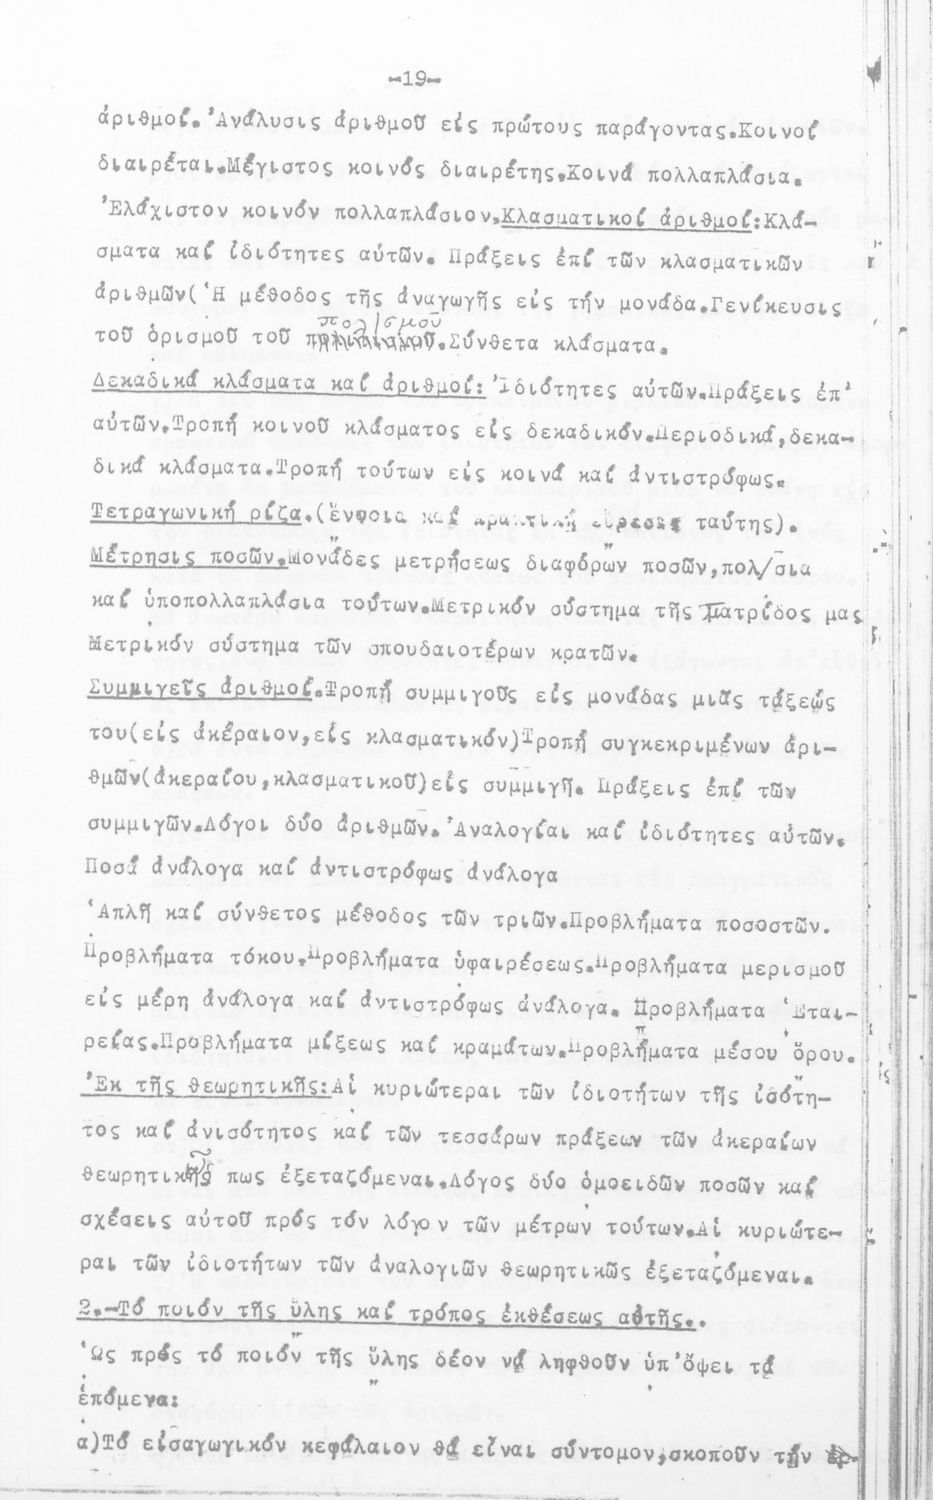 -19-
ἀριθμοί. Ἀνάλυσις ἀριθμοῦ εἰς πρώτους παράγοντας.Κοινοί
διαιρέται.Μέγιστος κοινός διαιρέτης.Κοινά πολλαπλάσια.
Ἐλάχιστον κοινόν πολλαπλάσιον.Κλασματικοί ἀριθμοί:Κλά-
σματα καί ἰδιότητες αὐτῶν. Πράξεις ἐπί τῶν κλασματικῶν
ἀριθμῶν(Ἡ μέθοδος τῆς ἀναγωγῆς εἰς τήν μονάδα.Γενίκευσις
τοῦ ὁρισμοῦ τοῦ πολ/σμοῦ.Σύνθετα κλάσματα.
Δεκαδικά κλάσματα καί ἀριθμοί: Ἰδιότητες αὐτῶν.Πράξεις ἐπ'
αὐτῶν.Τροπή κοινοῦ κλάσματος εἰς δεκαδικόν.Περιοδικά,δεκα-
δικά κλάσματα.Τροπή τούτων εἰς κοινά καί ἀντιστρόφως.
Τετραγωνική ρίζα.(ἔννοια καί πρακτική εὕρεσις ταύτης).
Μέτρησις ποσῶν.Μονάδες μετρήσεως διαφόρων ποσῶν,πολ/σια
καί ὑποπολλαπλάσια τούτων.Μετρικόν σύστημα τῆς Πατρίδος μας
Μετρικόν σύστημα τῶν σπουδαιοτέρων κρατῶν.
Συμμιγεῖς ἀριθμοί.Τροπή συμμιγοῦς εἰς μονάδας μιᾶς τάξεώς
του(εἰς ἀκέραιον,εἰς κλασματικόν)Τροπή συγκεκριμένων ἀρι-
θμῶν(ἀκεραίου,κλασματικοῦ)εἰς συμμιγῆ. Πράξεις ἐπί τῶν
συμμιγῶν.Λόγοι δύο ἀριθμῶν. Ἀναλογίαι καί ἰδιότητες αὐτῶν.
Ποσά ἀνάλογα καί ἀντιστρόφως ἀνάλογα
Ἁπλῆ καί σύνθετος μέθοδος τῶν τριῶν.Προβλήματα ποσοστῶν.
Προβλήματα τόκου.Προβλήματα ὑφαιρέσεως.Προβλήματα μερισμοῦ
εἰς μέρη ἀνάλογα καί ἀντιστρόφως ἀνάλογα. Προβλήματα Ἑται-
ρείας.Προβλήματα μίξεως καί κραμάτων.Προβλήματα μέσου ὅρου.
Ἐκ τῆς θεωρητικῆς:Αἱ κυριώτεραι τῶν ἰδιοτήτων τῆς ἰσότη-
τος καί ἀνισότητος καί τῶν τεσσάρων πράξεων τῶν ἀκεραίων
θεωρητικῶς πως ἐξεταζόμεναι.Λόγος δύο ὁμοειδῶν ποσῶν καί
σχέσεις αὐτοῦ πρός τόν λόγον τῶν μέτρων τούτων.Αἱ κυριώτε-
ραι τῶν ἰδιοτήτων τῶν ἀναλογιῶν θεωρητικῶς ἐξεταζόμεναι.
2.-Τό ποιόν τῆς ὕλης καί τρόπος ἐκθέσεως αὐτῆς..
Ὡς πρός τό ποιόν τῆς ὕλης δέον νά ληφθοῦν ὑπ'ὄψει τά
ἑπόμενα:
α)Τό εἰσαγωγικόν κεφάλαιον θά εἶναι σύντομον,σκοποῦν τήν